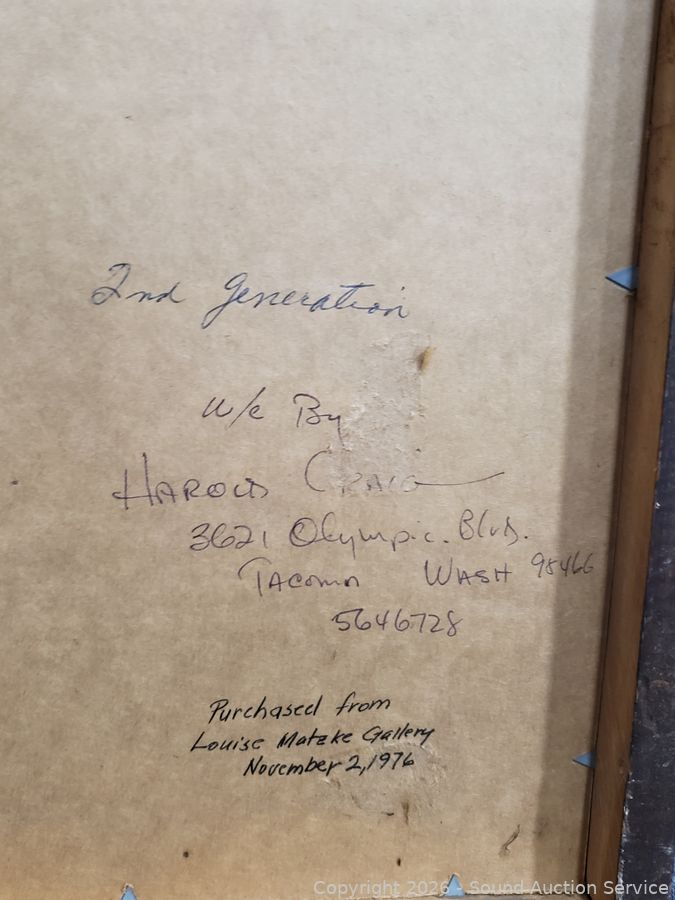 2nd Generation
w/c By
HAROLD CRAIG
3621 Olympic. Blvd.
TACOMA WASH 98466
5646728
Purchased from
Louise Matzke Gallery
November 2, 1976
Copyright 2026 - Sound Auction Service